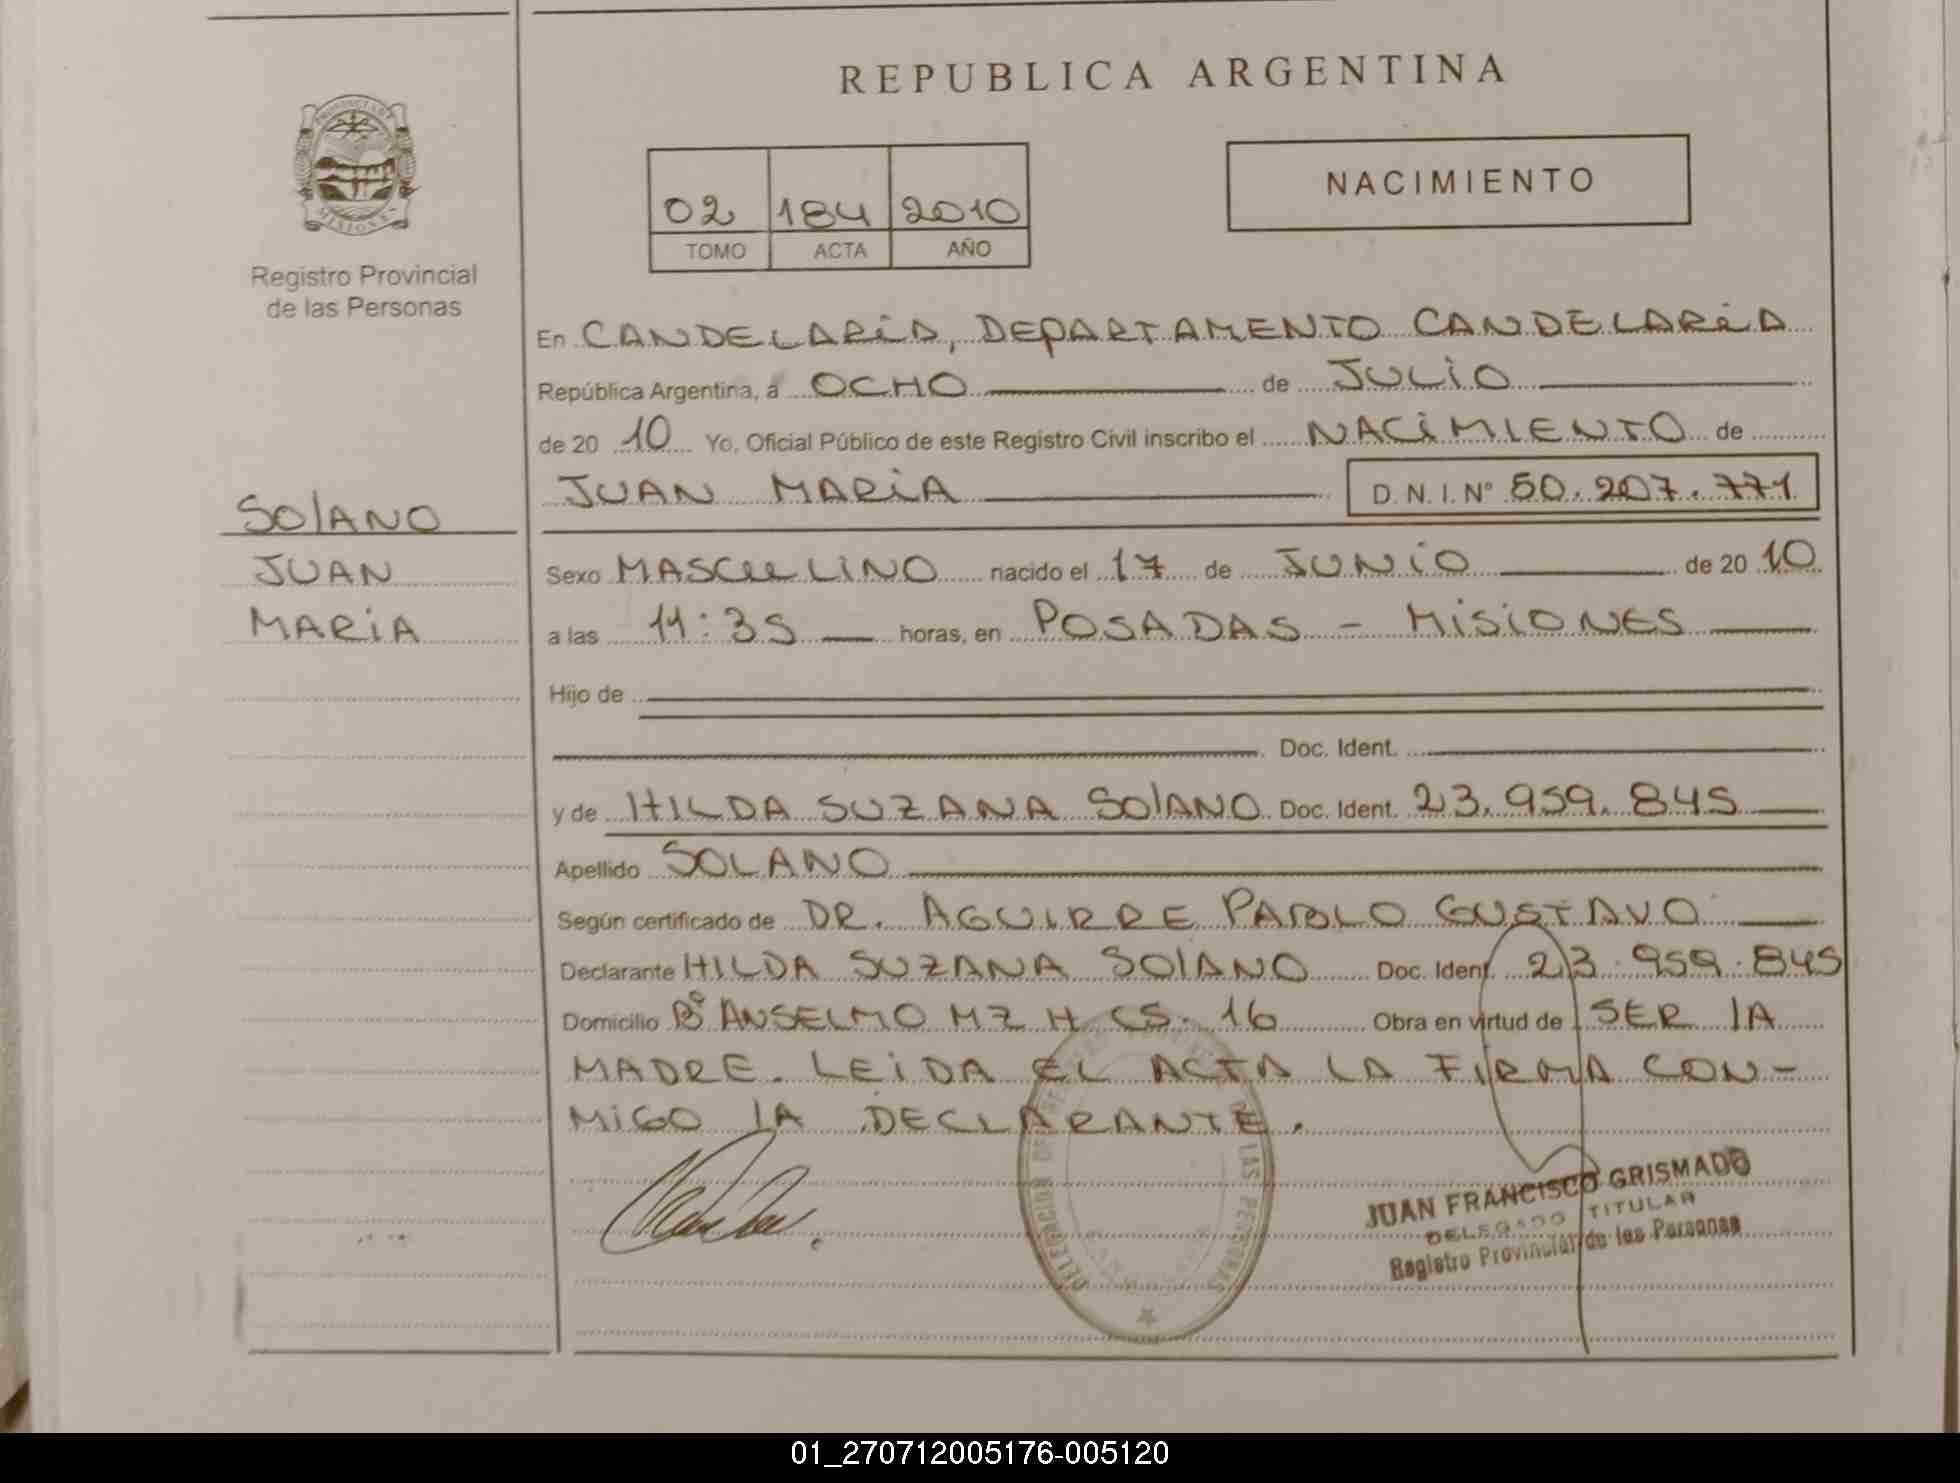 REPUBLICA ARGENTINA
02 184 2010
TOMO ACTA AÑO
NACIMIENTO
Registro Provincial
de las Personas
SOLANO
JUAN
MARIA
En CANDELARIA, DEPARTAMENTO CANDELARIA
República Argentina, a OCHO de JULIO
de 20 10 Yo, Oficial Público de este Registro Civil inscribo el NACIMIENTO de
JUAN MARIA D.N.I. Nº 50.207.771
Sexo MASCULINO nacido el 17 de JUNIO de 20 10
a las 11:35 horas, en POSADAS - MISIONES
Hijo de
Doc. Ident.
y de HILDA SUZANA SOLANO Doc. Ident. 23.959.845
Apellido SOLANO
Según certificado de DR. AGUIRRE PABLO GUSTAVO
Declarante HILDA SUZANA SOLANO Doc. Ident. 23.959.845
Domicilio Bº ANSELMO MZ H CS. 16 Obra en virtud de SER LA
MADRE. LEIDA EL ACTA LA FIRMA CON-
MIGO LA DECLARANTE.
JUAN FRANCISCO GRISMADO
DELEGADO TITULAR
Registro Provincial de las Personas
01_270712005176-005120